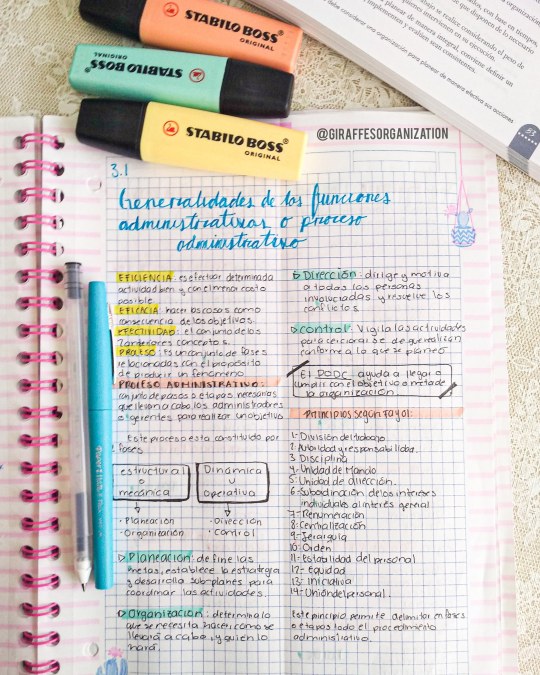 STABILO BOSS
ORIGINAL
STABILO BOSS
ORIGINAL
STABILO BOSS
ORIGINAL
@GIRAFFESORGANIZATION
53
3.1
Generalidades de las funciones
administrativas o proceso
administrativo
EFICIENCIA: es efectuar determinada
actividad bien y con el menor costo
posible
EFICACIA: hacer las cosas como
consecuencia de los objetivos.
EFECTIVIDAD: el conjunto de los
2 anteriores conceptos.
PROCESO: Es un conjunto de fases
relacionadas con el propósito
de producir un fenomeno
PROCESO ADMINISTRATIVO:
conjunto de pasos o etapas necesarias
que llevan a cabo los administradores
o gerentes para realizar un objetivo
Este proceso esta constituido por
fases
estructural
o
mecánica
Dinamica
u
operativa
· Planeación
· Organización
· Dirección
· Control
Planeación: define las
metas, establece la estrategia
y desarrolla subplanes para
coordinar las actividades.
Organización: determina lo
que se necesita hacer, como se
llevará a cabo, y quien lo
hará.
Dirección: dirige y motiva
a todas las personas
involucradas y resuelve los
conflictos
Control: Vigila las actividades
para cerciorarse de que realicen
conforme a lo que se planeó
El PODC ayuda a llegar o
cumplir con el objetivo o meta de
la organización.
Principios según Fayol:
1- División del trabajo
2- Autoridad y responsabilidad.
3- Disciplina
4- Unidad de Mando
5- Unidad de dirección.
6- Subordinación de los intereses
individuales al interés general
7- Remuneración
8- Centralización
9- Jerarquía
10- Orden
11- Estabilidad del personal
12- Equidad
13- Iniciativa
14- Unión del personal.
Este principio permite delimitar en fases
o etapas todo el procedimiento
administrativo.